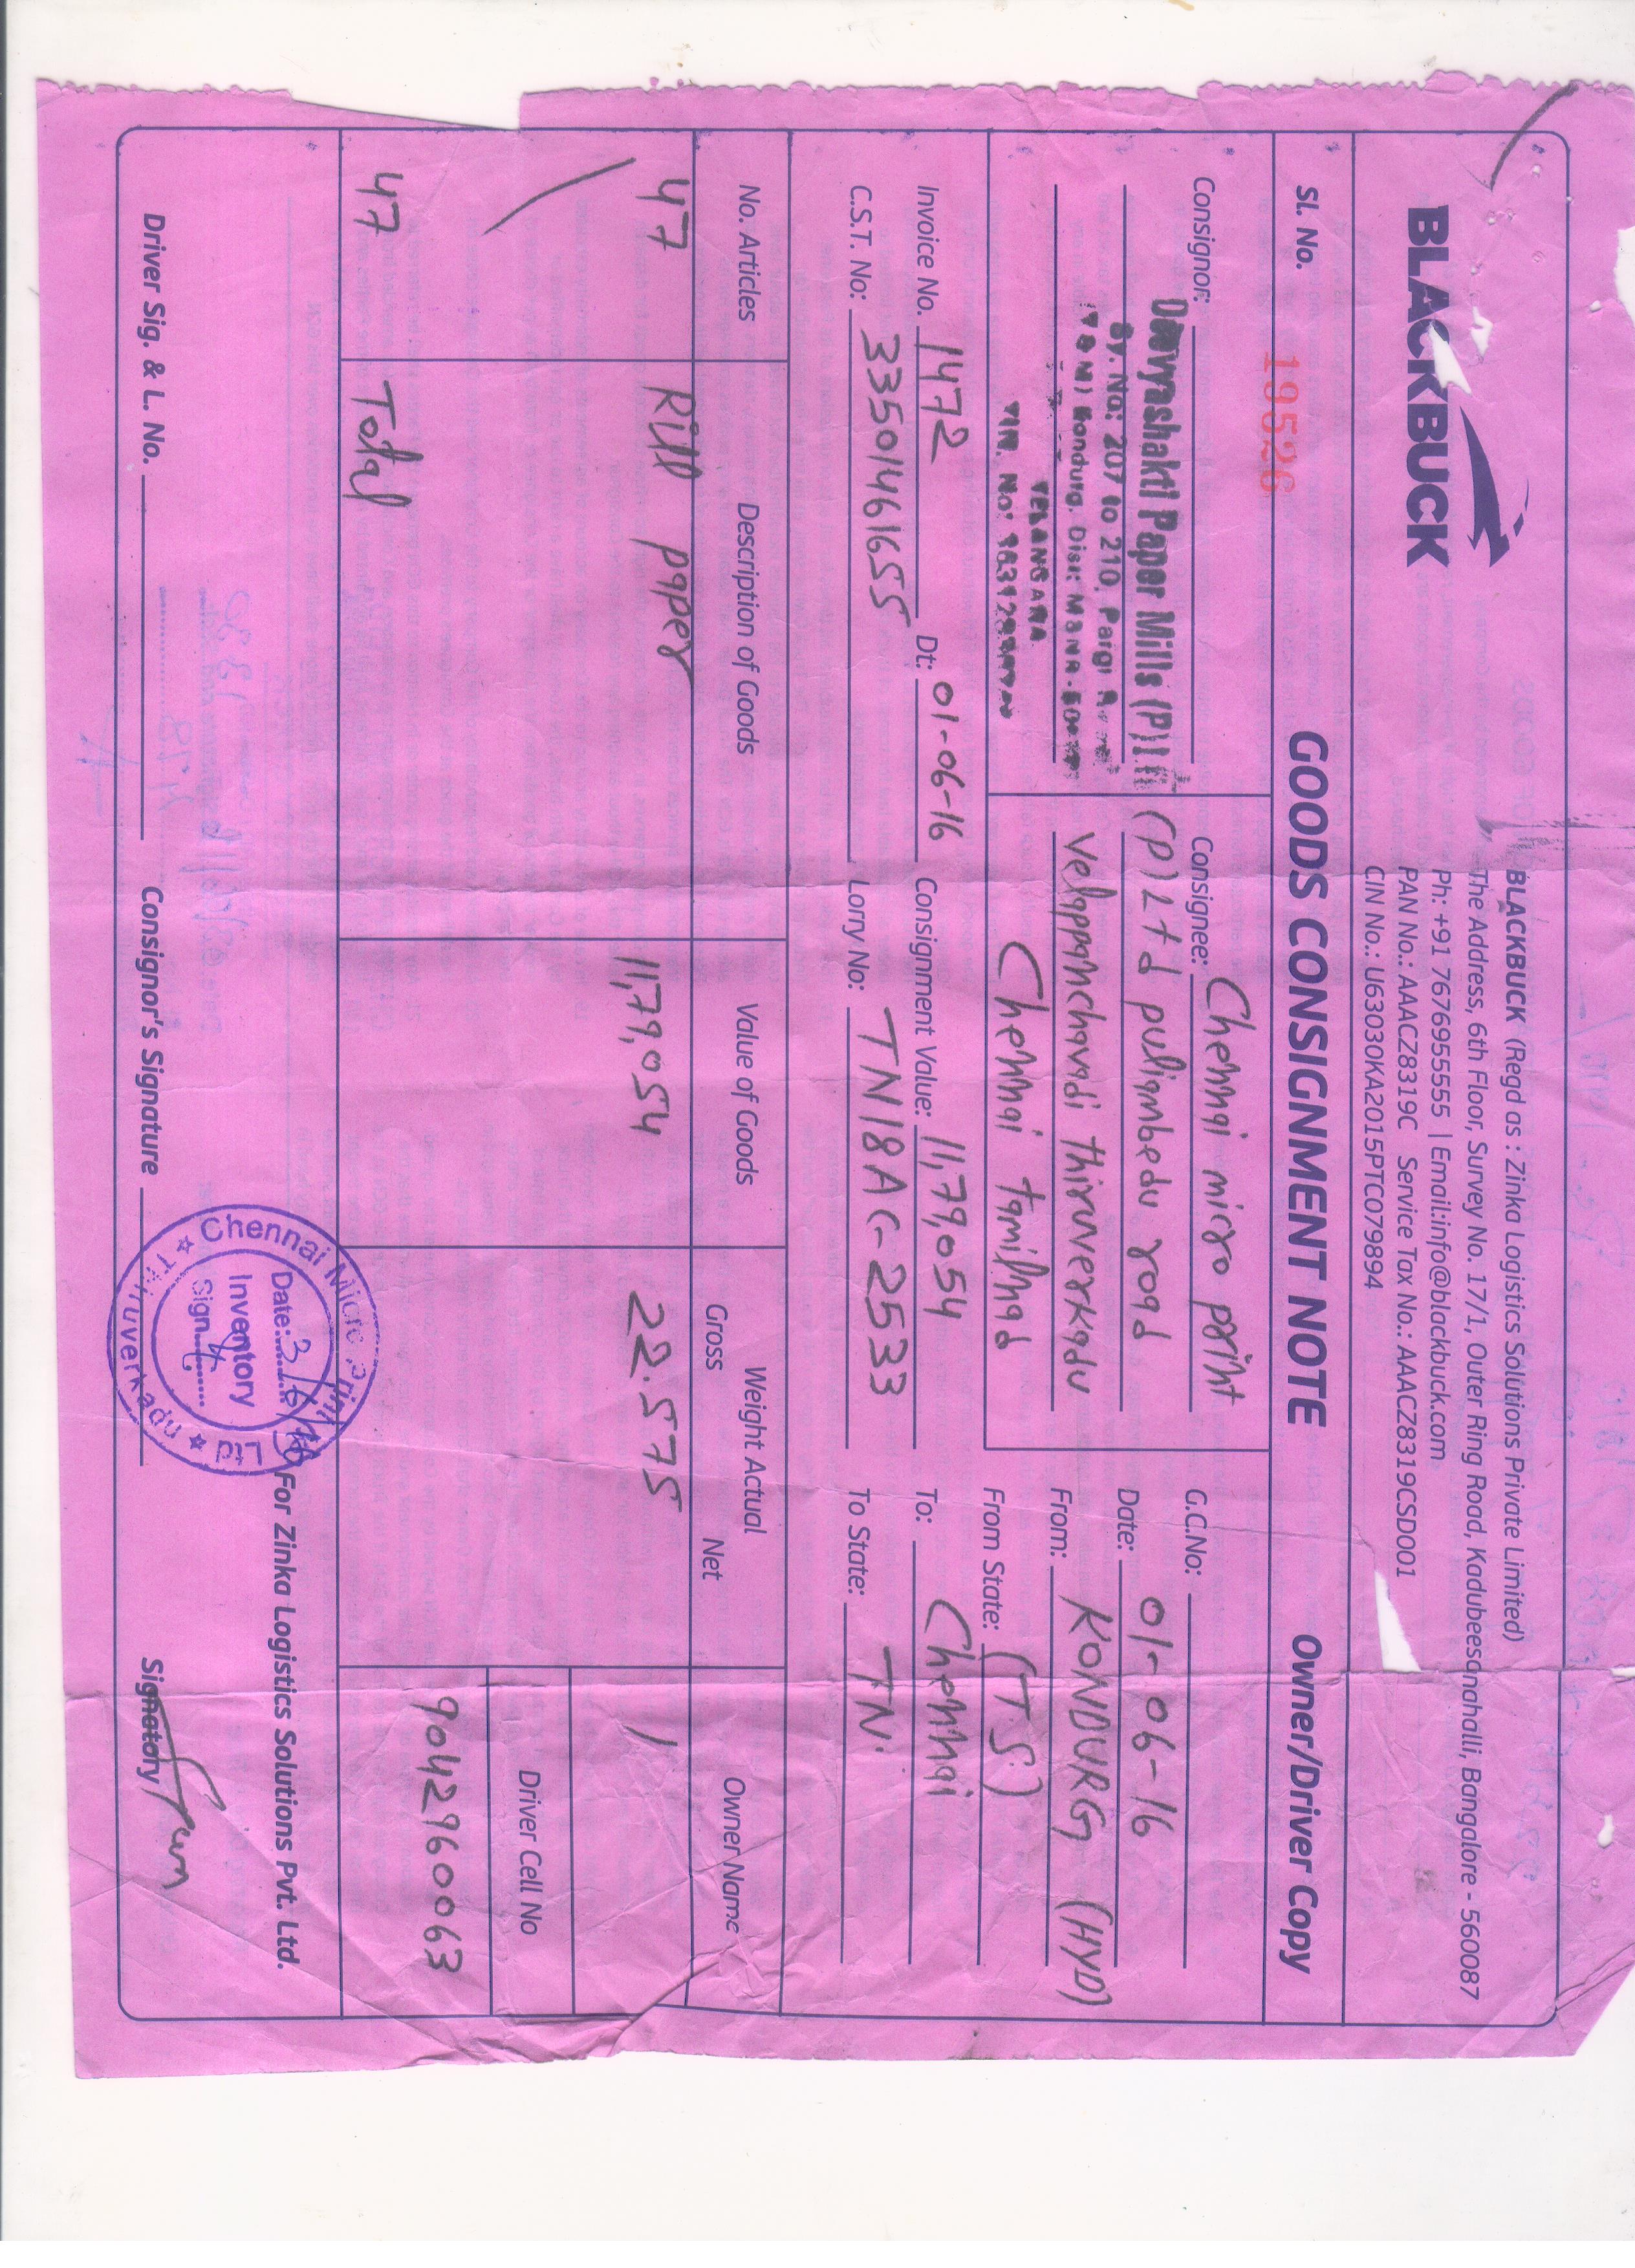 BLACKBUCK
BLACKBUCK (Regd as : Zinka Logistics Solutions Private Limited)
The Address, 6th Floor, Survey No. 17/1, Outer Ring Road, Kadubeesanahalli, Bangalore - 560087
Ph: +91 7676955555 | Email:info@blackbuck.com
PAN No.: AAACZ8319C Service Tax No.: AAACZ8319CSD001
CIN No.: U63030KA2015PTC079894
Sl. No. 19526 GOODS CONSIGNMENT NOTE Owner/Driver Copy
Consignor:
Dévyashakti Paper Mills (P)
Sy. No: 207 to 210, Pargi
Kondurg, Dist: M B N R
TELANGANA
No:
Consignee: Chennai micro print
(P) Ltd puliambedu road
Velappanchavadi thiruverkadu
Chennai tamilnad
G.C.No:
Date: 01-06-16
From: KONDURG (HYD)
From State: (T.S.)
Invoice No. 1472 Dt: 01-06-16 Consignment Value: 11,79,054 To: Chennai
C.S.T. No: 33501461655 Lorry No: TN18AC-2533 To State: TN.
No. Articles Description of Goods Value of Goods Weight Actual Owner Name
Gross Net
47 Rill paper 11,79,054 22.575
Driver Cell No
47 Total 9042960063
For Zinka Logistics Solutions Pvt. Ltd.
Chennai Micro Print Ltd ★ Thiruverkadu ★
Date: 3/6/16
Inventory
Sign
Driver Sig. & L. No. Consignor's Signature Signatory